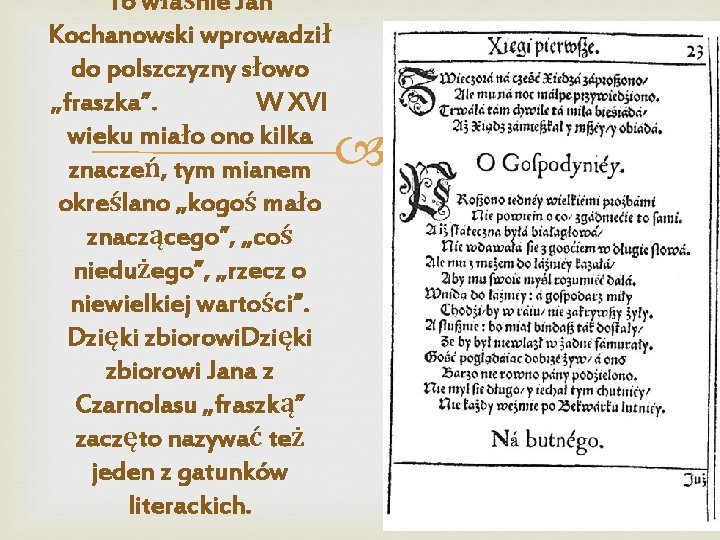 To właśnie Jan
Kochanowski wprowadził
do polszczyzny słowo
„fraszka”. W XVI
wieku miało ono kilka
znaczeń, tym mianem
określano „kogoś mało
znaczącego”, „coś
niedużego”, „rzecz o
niewielkiej wartości”.
Dzięki zbiorowi.Dzięki
zbiorowi Jana z
Czarnolasu „fraszką”
zaczęto nazywać też
jeden z gatunków
literackich.
Xięgi pierwſze. 23
Twieczorá ná cżeść Xiędzá záproßono/
Ale mu ná noc máłpę przywiedźiono.
Trwáłá tám chwilę tá miła bieśiádá:
Aż Xiądz zámießkał y mßéy/ y obiádá.
O Goſpodyniéy.
PRoßono iednéy wielkiémi proźbámi
Nie powiem o co/ zgádniećie to ſámi.
A iż ſtateczna byłá białagłowá/
Nie wdawáłá ſię z gośćiem w długie ſłowá.
Ale mu z mężem do łáźniéy kazáłá/
Aby mu ſwoię myśl rozumieć dáłá.
Wnidą do łáźniéy: á goſpodarz miły
Chodźi/ by w ráiu/ nie zákrywſzy żyły.
A ſłußnie: bo miał bindaß ták doſtáły/
Że by był niewlazł w żadne fámuráły.
Gość poglądáiąc dobrze żyw/ á ono
Bárzo nie rowno pány podźielono.
Nie myſl ſię długo/ y iechał tym chutniéy/
Nie káżdy weźmie po Bekwárku lutniéy.
Ná butnégo.
Już